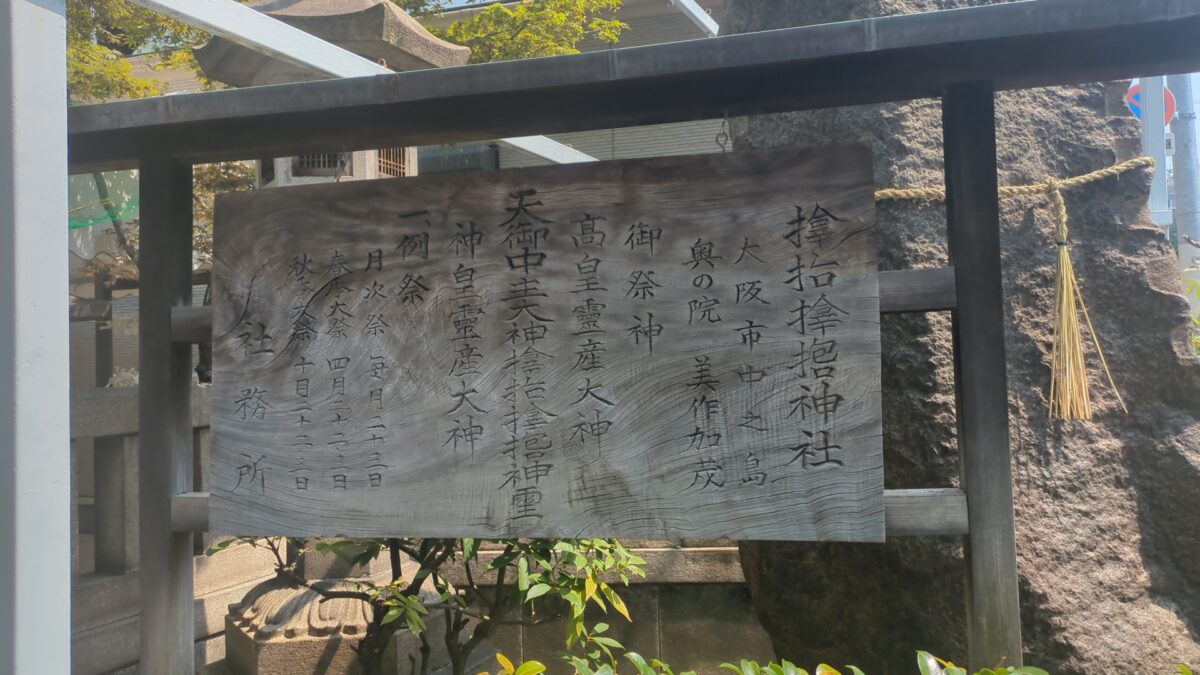 𪮷抬𪮷𪮇神社
大阪市中之島
奥の院 美作加茂
御祭神
髙皇靈産大神
天御中主大神𪮷抬𪮷𪮇神霊
神皇靈産大神
一例祭
月次祭 毎月二十三日
春季大祭 四月二十二、三日
秋季大祭 十月二十二、三日
社務所